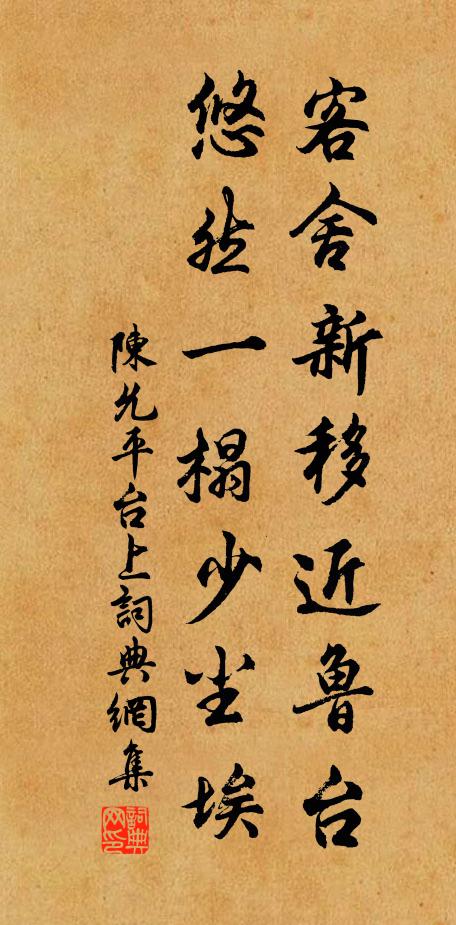 客舍新移近魯台
悠然一榻少尘埃
陳允平台上詞典網集
詞典网印